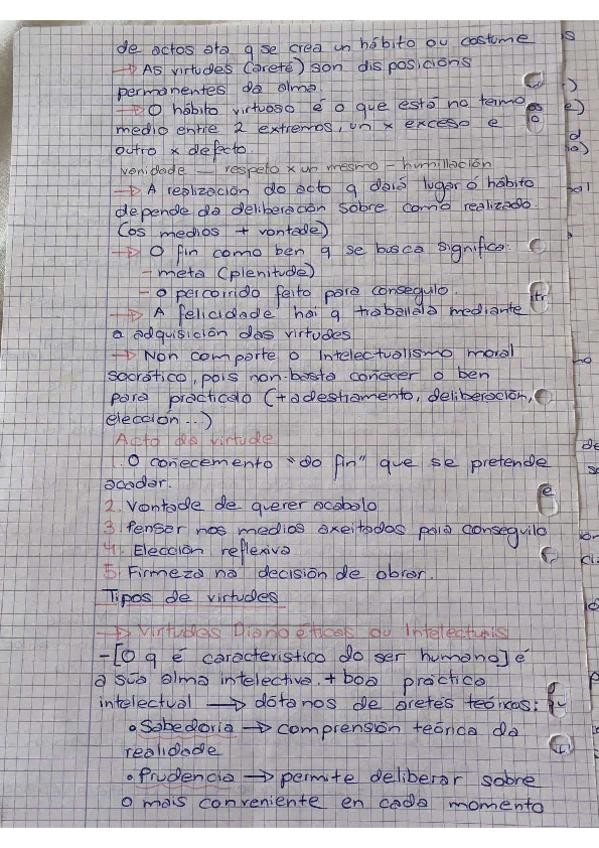 de actos ata q se crea un hábito ou costume
→ As virtudes (areté) son disposicións
permanentes da alma.
→ O hábito virtuoso é o que está no termo
medio entre 2 extremos, un x exceso e
outro x defecto.
vanidade — respeto x un mesmo - humillación
→ A realización do acto q dará lugar ó hábito
depende da deliberación sobre como realizado.
(os medios + vontade)
→ O fin como ben q se busca significa:
- meta (plenitude)
- o percorrido feito para conseguilo.
→ A felicidade hai q traballala mediante
a adquisición das virtudes
→ Non comparte o Intelectualismo moral
socrático, pois non basta coñecer o ben
para practicalo (+ adestramento, deliberación,
elección...)
Acto da virtude
1. O coñecemento "do fin" que se pretende
acadar.
2. Vontade de querer acabalo
3. Pensar nos medios axeitados para conseguilo
4. Elección reflexiva
5. Firmeza na decisión de obrar.
Tipos de virtudes
→ Virtudes Dianoéticas ou Intelectuais
- [O q é característico do ser humano] é
a súa alma intelectiva. + boa práctica
intelectual → dótanos de aretés teóricas:
• Sabedoria → comprensión teórica da
realidade
• Prudencia → permite deliberar sobre
o mais conveniente en cada momento